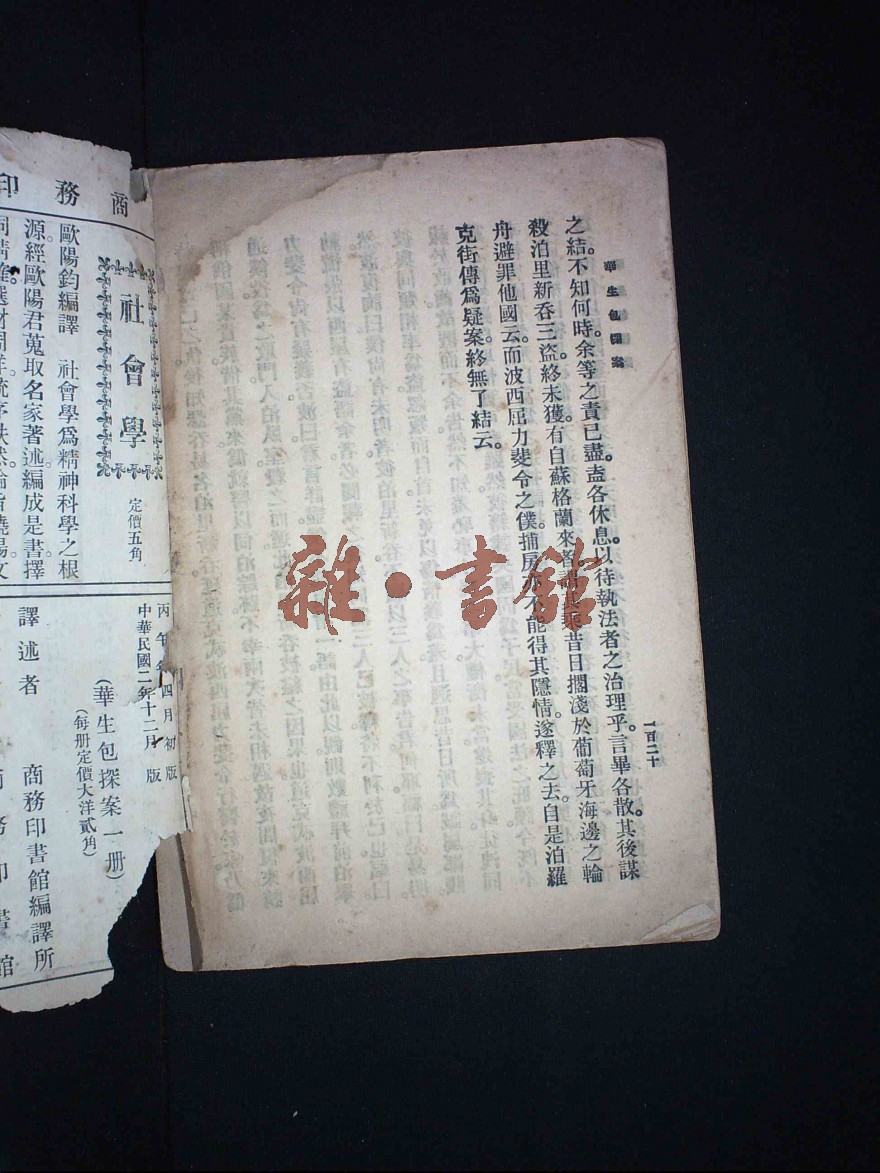 華生包探案
一百二十
之結。不知何時。余等之責已盡。盍各休息。以待執法者之治理乎。言畢各散。其後謀
殺泊里新吞三盜。終未獲。有自蘇格蘭來者。昔日擱淺於葡萄牙海邊之輪
舟避罪他國云。而波西屈力斐令之僕捕房亦不能得其隱情。遂釋之去。自是泊羅
克街傳爲疑案。終無了結云。
雜·書館
商務印
社會學
定價五角
歐陽鈞編譯 社會學爲精神科學之根
源。經歐陽君蒐取名家著述。編成是書。擇
丙午年四月初版
中華民國二年十二月 版
(華生包探案一册)
(每册定價大洋貳角)
譯述者 商務印書館編譯所
商務印書館